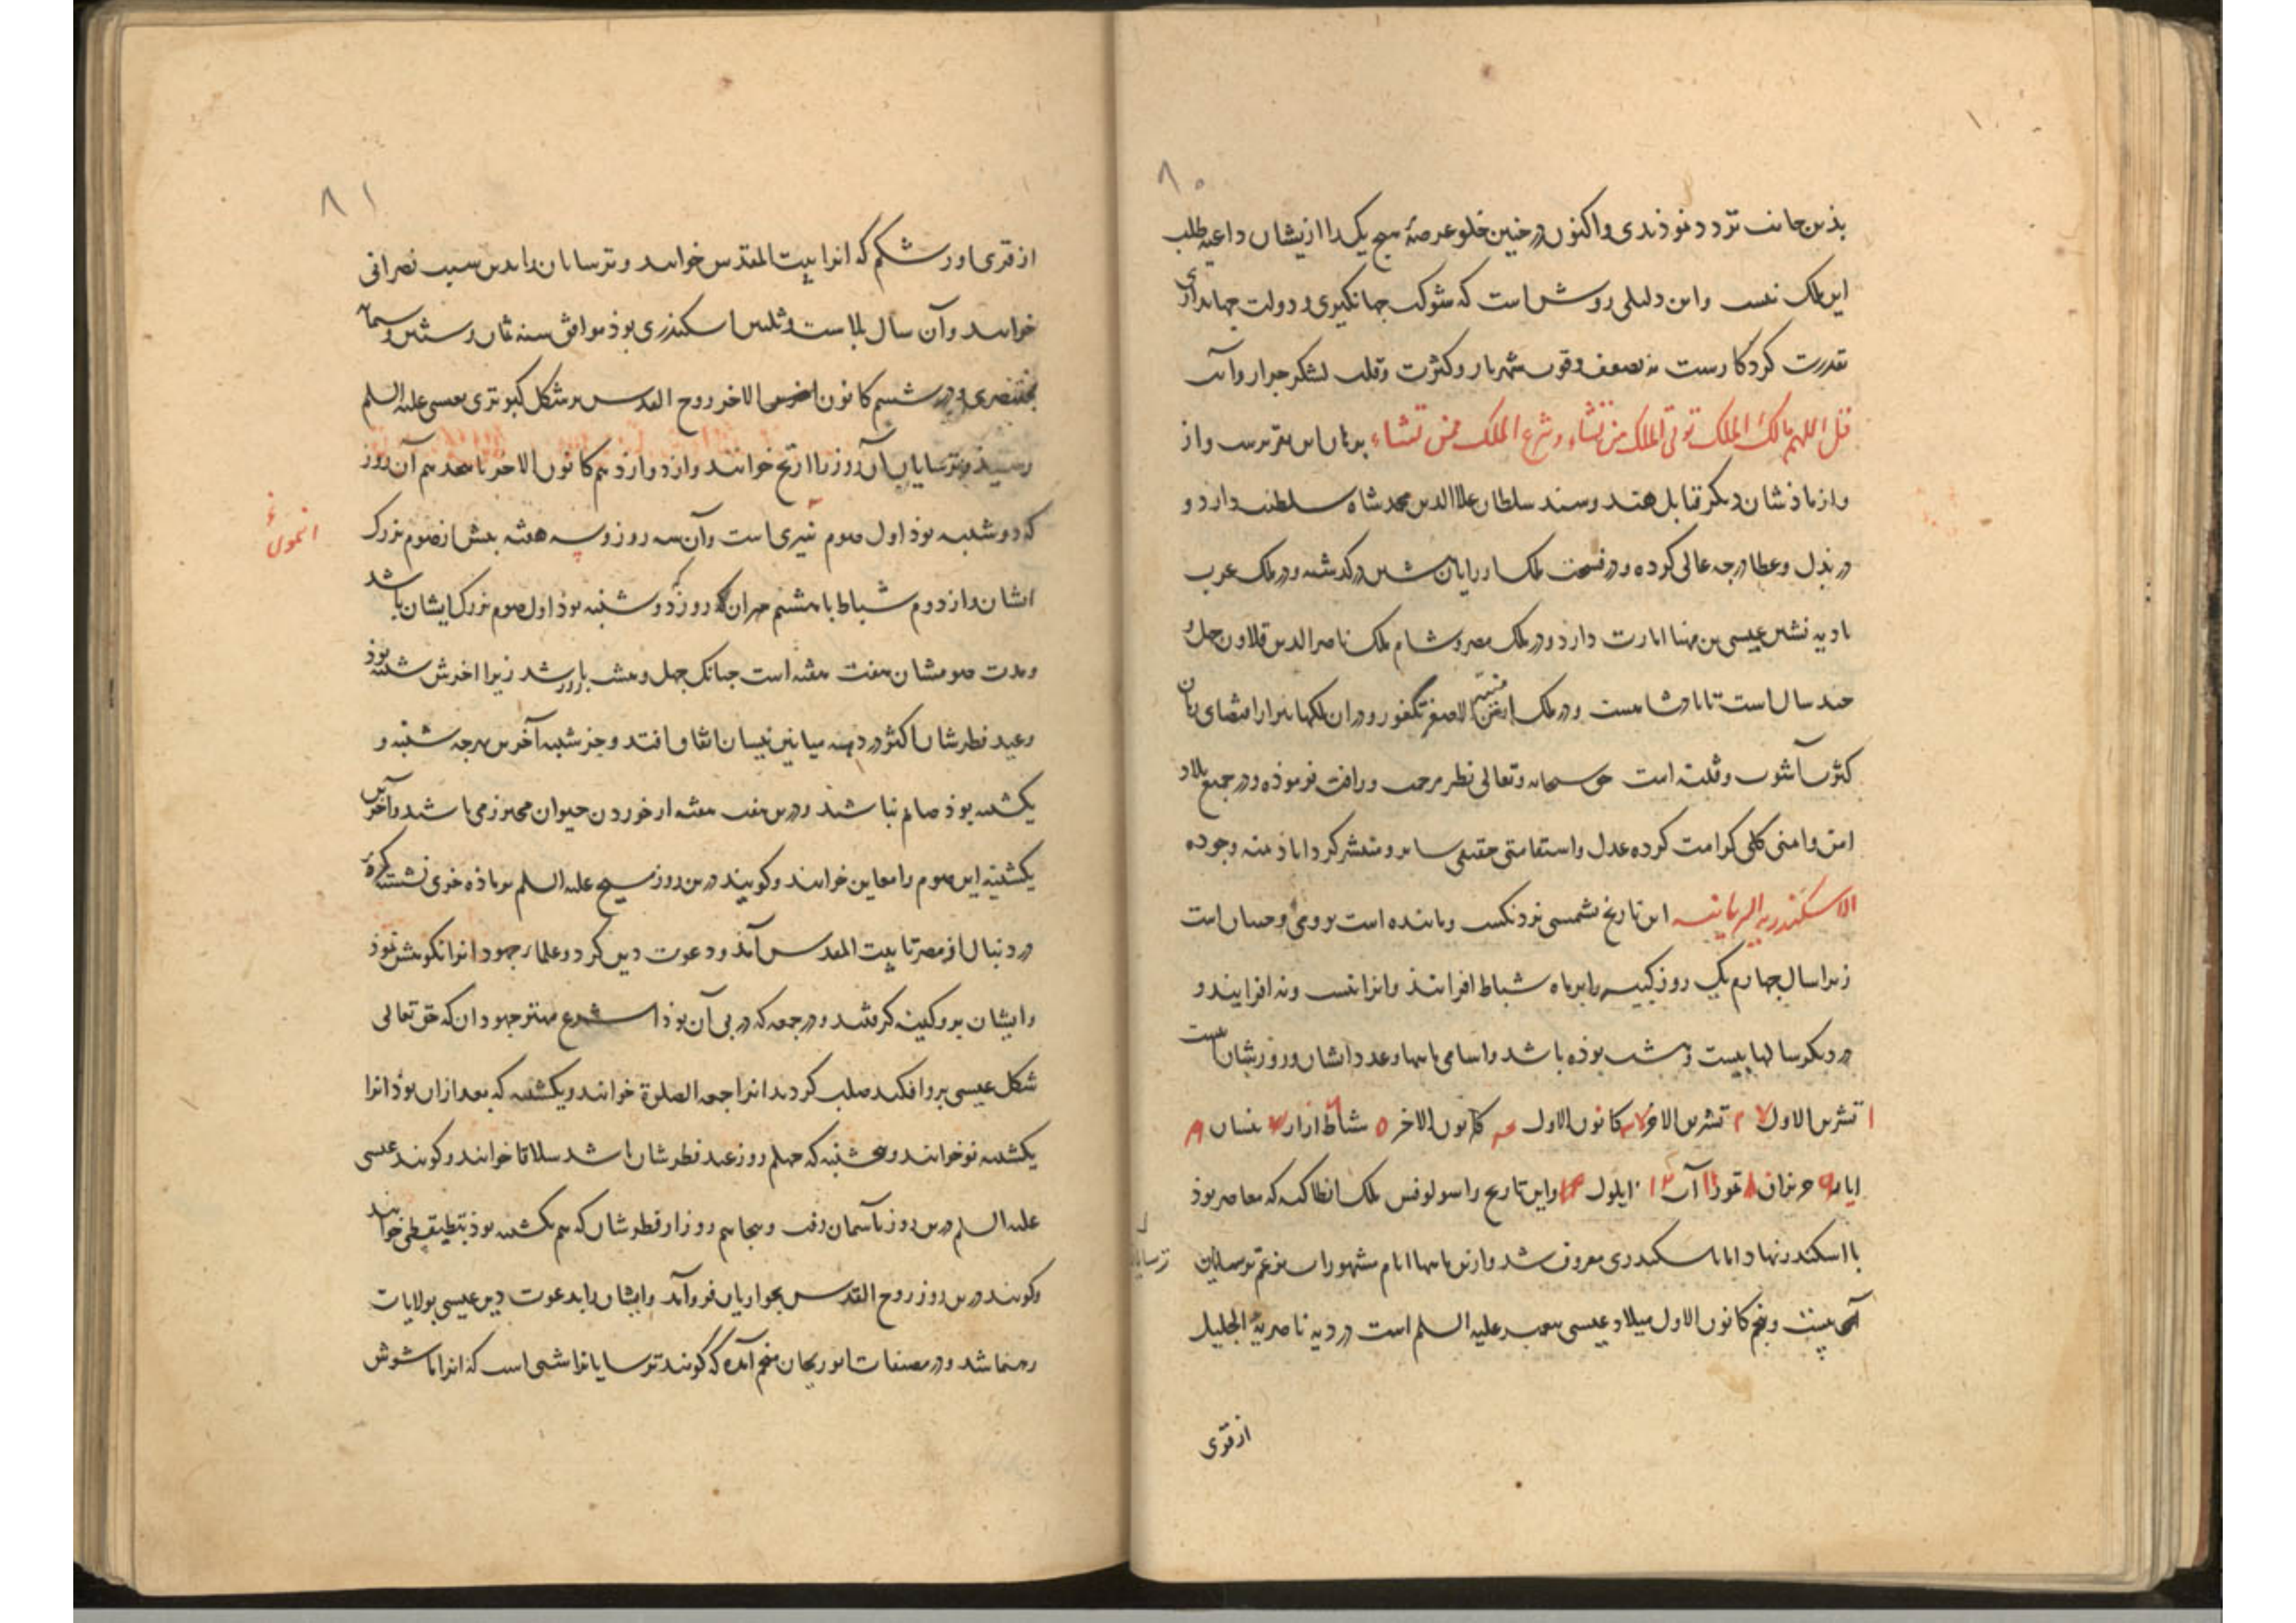 ۸۰
بذین جانب تردد نموذندی واکنون در چنین خلو عرصهٔ هیچ یک را ازیشان داعیه طلب
این ملک نیست واین دلیلی روشن است که شوکت جهانگیری و دولت جهانداری
بقدرت کردکارست نه بضعف وقوت شهریار وکثرت وقلت لشکر جرار وآیت
قل اللهم مالک الملک توتی الملک من تشاء وتنزع الملک ممن تشاء برهان این تقریرست واز
واز پاذشاهان دیگر تقابل هند وسند سلطان علاالدین محمد شاه سلطنت دارد و
در بذل وعطا درجه عالی کرده ودر فسحت ملک از درکذشته ودر ملک عرب
بادیه نشین عیسی بن مهنا امارت دارد ودر ملک مصر وشام ملک ناصر الدین قلاون چهل و
چند سال است تا پادشاهست ودر ملک ارمن الاصغر تکفور ودران ملکها بنابر اقتضای زمان
کثرت آشوب وفتنه است حق سبحانه وتعالی نظر مرحمت ورافت فرموذه ودر جمیع بلاد
امن وامنی کلی کرامت کرده عدل واستقامتی حقیقی سایر ومنتشر کرداناذ بمنه وجوده
الاسکندریه السریانیه این تاریخ شمسی نزدیکست وماننده است برومی وحسان است
زیرا سال چهارم یک روز کبیسه را برماه شباط افزایند وانرا نیست ونه افزایند و
در دیگر سالها بیست وهشت بوذه باشد واسامی ماهها وعدد ایشان وروزشان اینست
۱ تشرین الاول لا ۲ تشرین الاخر کانون الاول کانون الاخر ۵ شباط اذار نیسان
ایار حزیران تموز ۱۱ آب ۱۲ ایلول واین تاریخ را سولوقس ملک انطاکیه که معاصر بوذ
با اسکندر نهاد اما باسکندری معروف شد وازین ماهها ایام مشهور است بزعم ترسایان
آنک بیست وپنجم کانون الاول میلاد عیسی پیغمبر علیه السلم است در دیه ناصریة الجلیل
ترسایان
از قری
۸۱
از قری اورشلم که انرا بیت المقدس خوانند وترسایان را بدین سبب نصرانی
خوانند وآن سال اسکندری بوذ موافق سنه ثمان وستین وسبعمایه
بختنصری ودر ششم کانون الاخر روح القدس برشکل کبوتری بعیسی علیه السلم
رسیذ وترسایان آن روز را خوانند واز دوازدهم کانون الاخر تا هجدهم آن روز
که دوشنبه بوذ اول صوم است وآن سه روز وسه هفته پیش از صوم بزرک
ایشان واز دوم شباط تا هشتم هران که روز دوشنبه بوذ اول صوم بزرک ایشان باشد
ومدت صومشان هفت هفته است چنانک چهل وهشت روز باشد زیرا اخرش شنبه بوذ
وعید فطرشان اکثر در نیسان اتفاق افتد وجز شنبه آخرین هرچه شنبه و
یکشنبه بوذ صایم نباشند ودرین هفت هفته از خوردن حیوان محترز می باشند وآخرین
یکشنبه این صوم را معاین خوانند وگویند درین روز مسیح علیه السلم بر ماده خری نشسته کره
در دنبال از مصر تا بیت المقدس آمذ ودعوت دین کرد وعلماء جهود انرا نکوهش نموذ
وایشان برو کینه کرفتند ودر جمعه که در پی آن بوذ مهتر جهودان که حق تعالی
شکل عیسی برو افکند صلب کردند انرا جمعه الصلوة خوانند ویکشنبه که بعد ازان بوذ انرا
یکشنبه نو خوانند وپنجشنبه که چهلم روز عید فطرشان باشد سلاقا خوانند وگویند عیسی
علیه السلم درین روز بآسمان رفت وپنجاهم روز از فطرشان که هم یکشنبه بوذ خوانند
وگویند درین روز روح القدس بحواریان فروآمد وایشان را بدعوت دین عیسی بولایات
رهنما شد ودر مصنفات ابوریحان منجم آمده که گویند ترسایانرا شبی است که انرا ماشوش